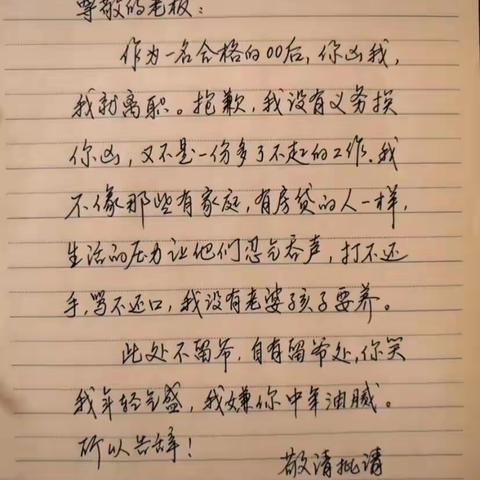 尊敬的老板：
作为一名合格的00后，你凶我，
我就离职。抱歉，我没有义务挨
你凶，又不是一份多了不起的工作。我
不像那些有家庭，有房贷的人一样，
生活的压力让他们忍气吞声，打不还
手，骂不还口，我没有老婆孩子要养。
此处不留爷，自有留爷处，你笑
我年轻气盛，我嫌你中年油腻。
所以告辞！
敬请批请